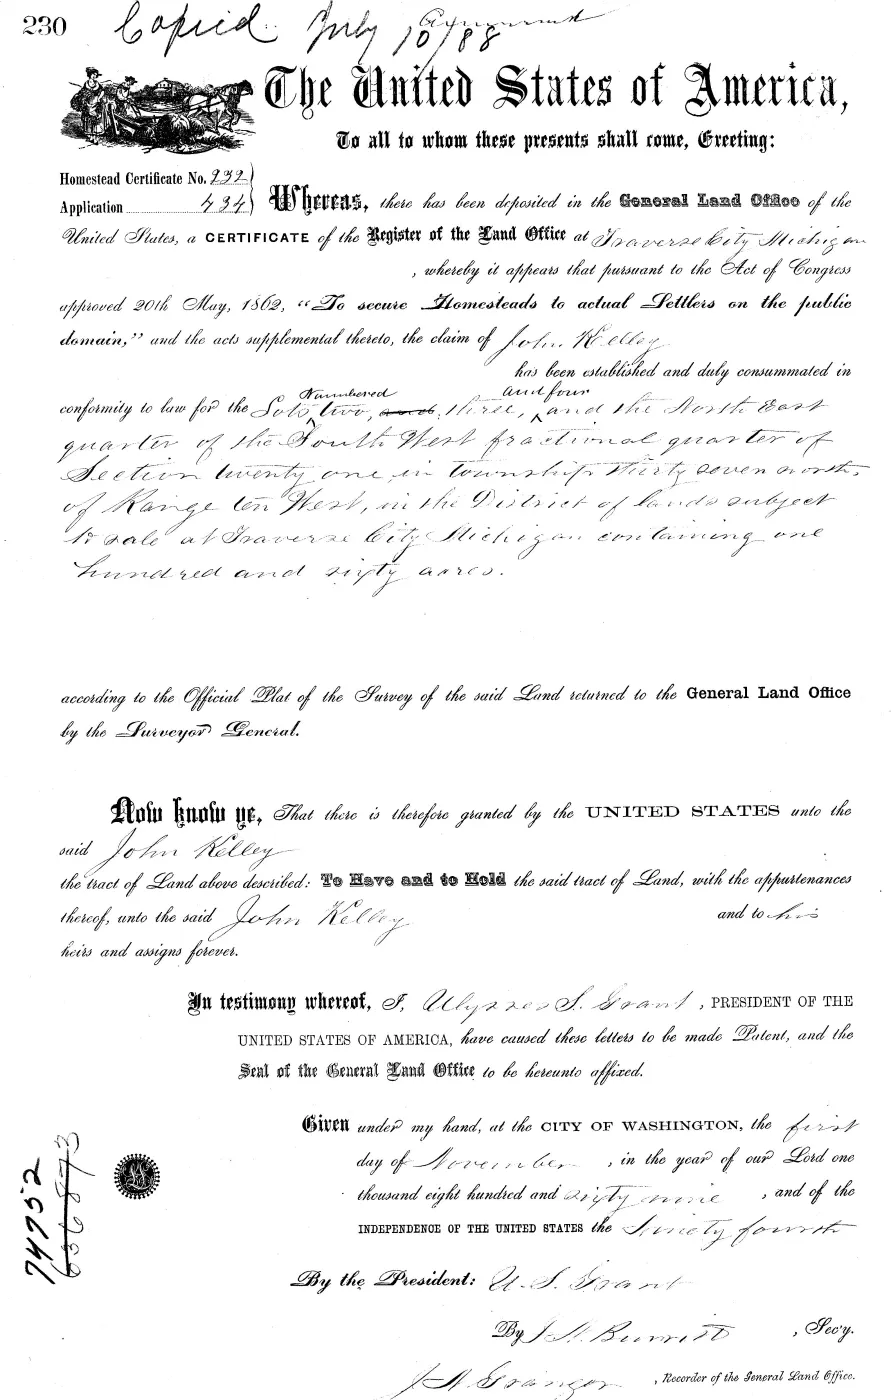 230
Copied July 10/88
The United States of America,
To all to whom these presents shall come, Greeting:
Homestead Certificate No. 232
Application 434
Whereas, there has been deposited in the General Land Office of the
United States, a CERTIFICATE of the Register of the Land Office at Traverse City Michigan
, whereby it appears that pursuant to the Act of Congress
approved 20th May, 1862, "To secure Homesteads to actual Settlers on the public
domain," and the acts supplemental thereto, the claim of John Kelley
has been established and duly consummated in
conformity to law for the Lots Numbered two, and three, and four and the North East
quarter of the South West fractional quarter of
Section twenty one, in township thirty seven north,
of Range ten West, in the District of lands subject
to sale at Traverse City Michigan containing one
hundred and sixty acres.
according to the Official Plat of the Survey of the said Land returned to the General Land Office
by the Surveyor General.
Now know ye, That there is therefore granted by the UNITED STATES unto the
said John Kelley
the tract of Land above described: To Have and to Hold the said tract of Land, with the appurtenances
thereof, unto the said John Kelley and to his
heirs and assigns forever.
In testimony whereof, I, Ulysses S. Grant, PRESIDENT OF THE
UNITED STATES OF AMERICA, have caused these letters to be made Patent, and the
Seal of the General Land Office to be hereunto affixed.
Given under my hand, at the CITY OF WASHINGTON, the first
day of November, in the year of our Lord one
thousand eight hundred and sixty nine, and of the
INDEPENDENCE OF THE UNITED STATES the Ninety fourth
By the President: U. S. Grant
By , Sec'y.
J N Granger, Recorder of the General Land Office.
74752
636873